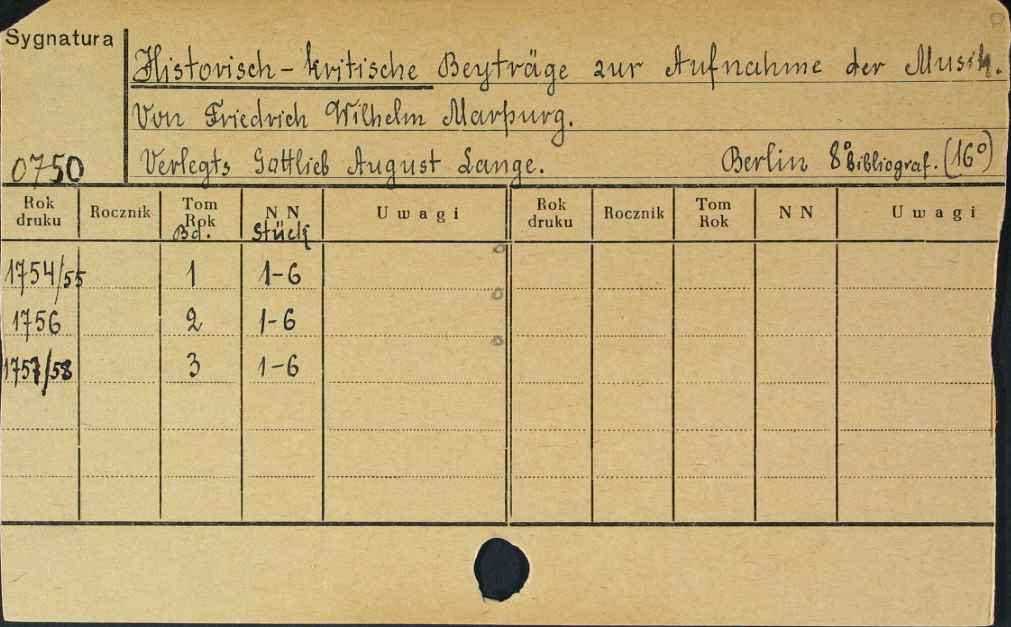 Sygnatura
Historisch-kritische Beyträge zur Aufnahme der Musik.
Von Friedrich Wilhelm Marpurg.
0750 Verlegts Gottlieb August Lange. Berlin 8° bibliograf. (16°)
Rok druku Rocznik Tom Rok Bd. N N Stück Uwagi Rok druku Rocznik Tom Rok N N Uwagi
1754/55 1 1-6
1756 2 1-6
1757/58 3 1-6